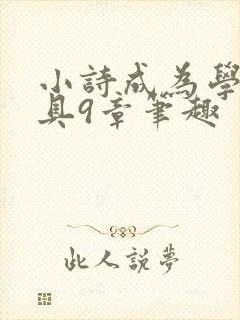 小詩成為學
具9章筆趣
此人說夢